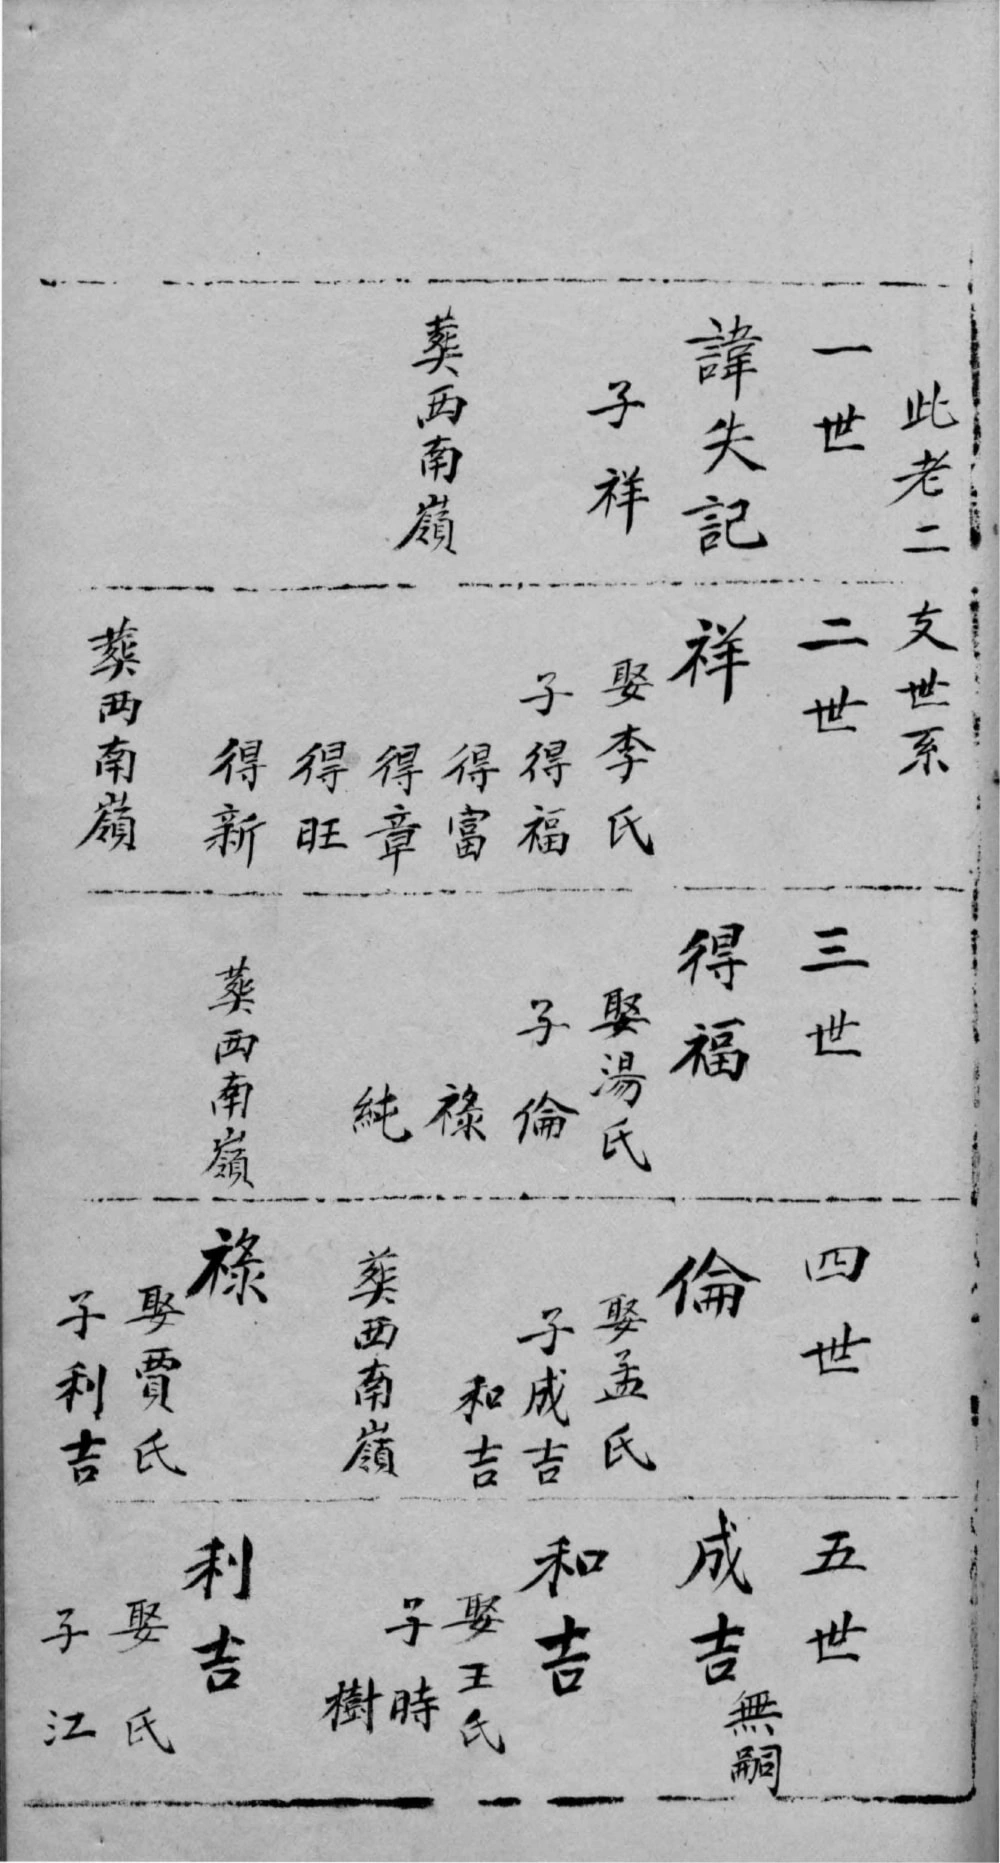 此老二支世系
一世
諱失記
子祥
葬西南嶺
二世
祥
娶李氏
子得福
得富
得章
得旺
得新
葬西南嶺
三世
得福
娶湯氏
子倫
祿
純
葬西南嶺
四世
倫
娶孟氏
子成吉
和吉
葬西南嶺
祿
娶賈氏
子利吉
五世
成吉
無嗣
和吉
娶王氏
子時
樹
利吉
娶 氏
子江